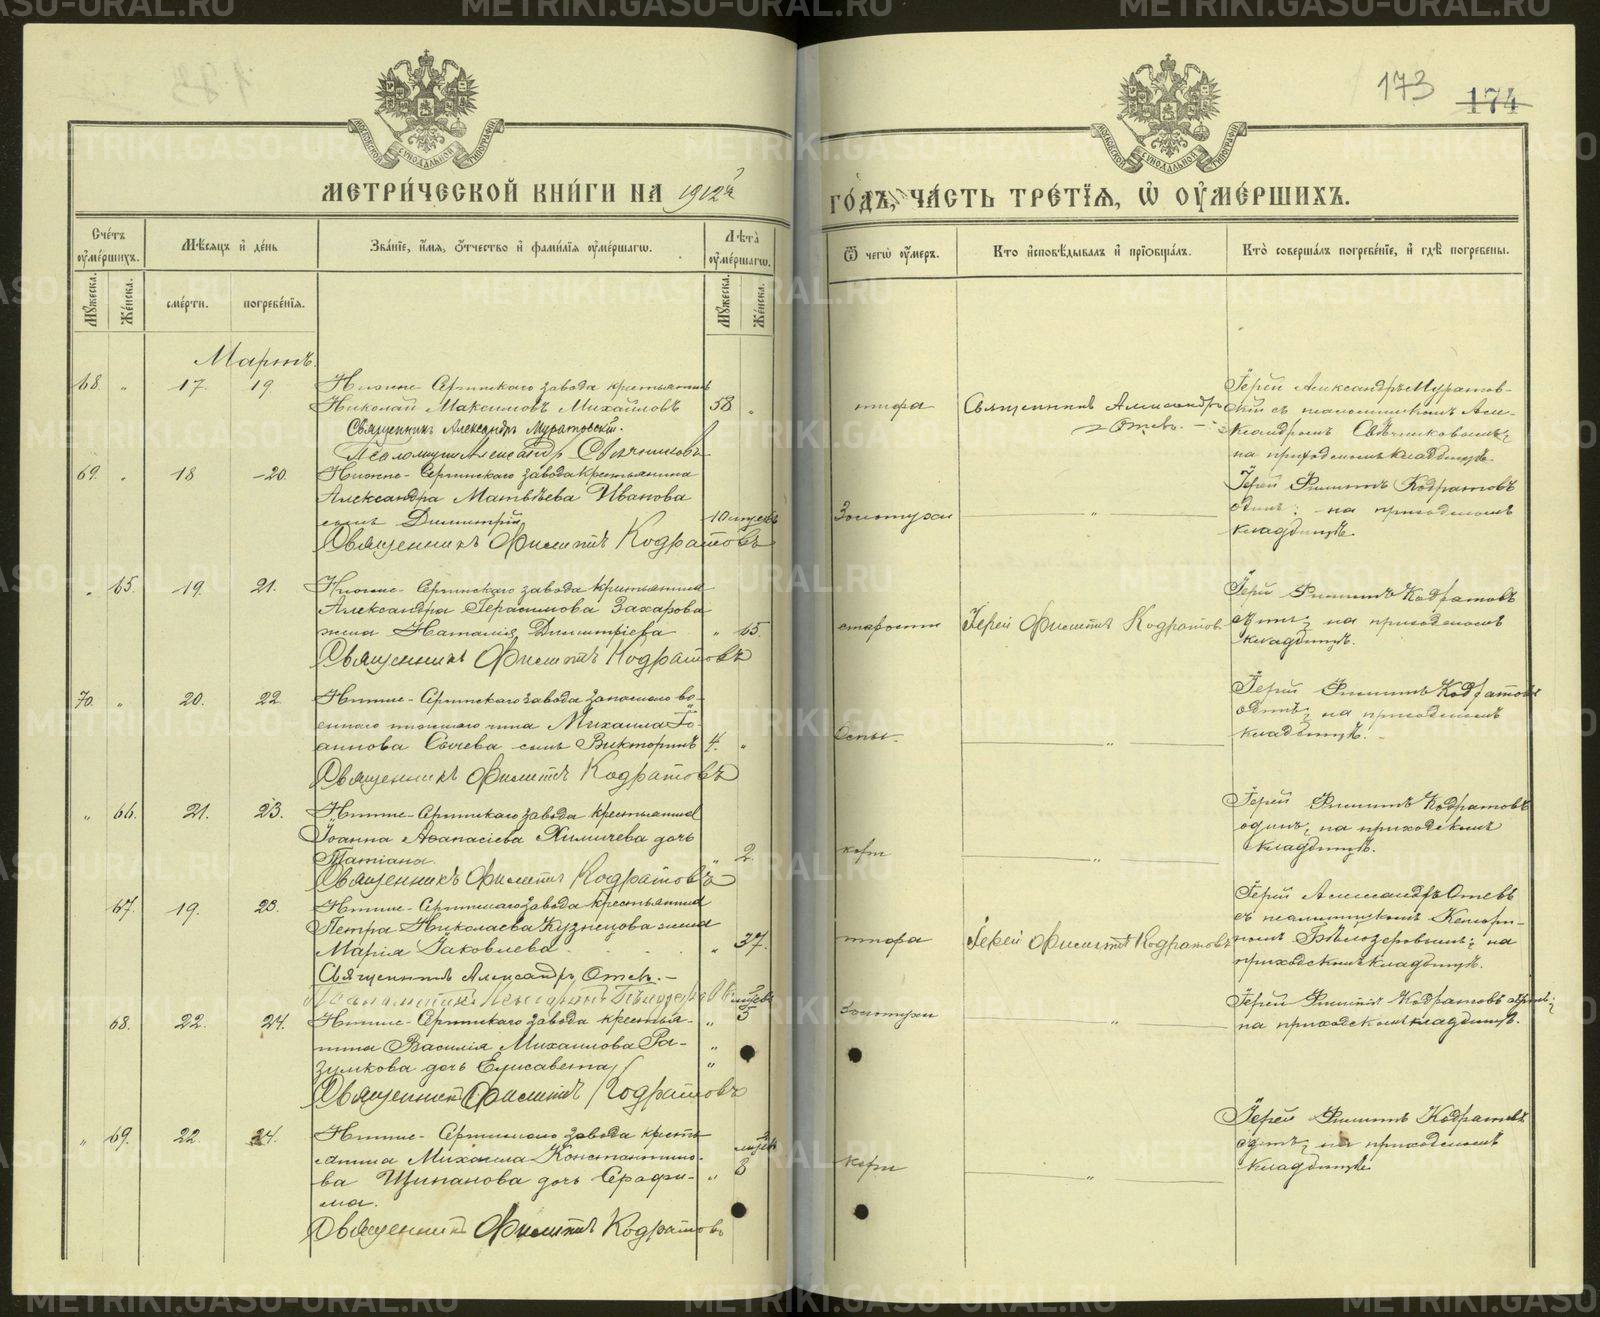 173
174
МЕТРИЧЕСКОЙ КНИГИ НА 1912 й
ГОДЪ, ЧАСТЬ ТРЕТІЯ, Ѡ ОУМЕРШИХЪ.
МОСКОВСКОЙ СѴНОДАЛЬНОЙ ТИПОГРАФІИ
МОСКОВСКОЙ СѴНОДАЛЬНОЙ ТИПОГРАФІИ
Счетъ оумершихъ.
Мѣсяцъ и день
Званіе, имя, отчество и фамилія оумершагѡ.
Лѣта оумершагѡ.
Ѿ чегѡ оумеръ.
Кто исповѣдывалъ и пріобщалъ.
Кто совершалъ погребеніе, и гдѣ погребены.
Мужеска. Женска.
смерти. погребенія.
Мужеска. Женска.
Мартъ.
68. " 17. 19. Нижне-Сергинскаго завода крестьянинъ
Николай Максимовъ Михайловъ 58 "
Священникъ Александръ Муратовскій.
Псаломщикъ Александръ Свѣчниковъ
тифа
Священникъ Александръ
Отевъ.
Іерей Александръ Муратов-
скій съ псаломщикомъ Але-
ксандромъ Свѣчниковымъ;
на приходскомъ кладбищѣ.
69. " 18 20. Нижне-Сергинскаго завода крестьянина
Александра Матвѣева Иванова
сынъ Димитрій 10 мѣсяцъ
Священникъ Филиппъ Кодратовъ
Золотухи "
Іерей Филиппъ Кодратовъ
одинъ; на приходскомъ
кладбищѣ.
" 65. 19. 21. Нижне-Сергинскаго завода крестьянина
Александра Герасимова Захарова
жена Наталія Димитріева " 65.
Священникъ Филиппъ Кодратовъ
старости
Іерей Филиппъ Кодратовъ
Іерей Филиппъ Кодратовъ
одинъ; на приходскомъ
кладбищѣ.
70. " 20. 22 Нижне-Сергинскаго завода запаснаго во-
еннаго чина Михаила Іо-
аннова Сычева сынъ Викторинъ 4. "
Священникъ Филиппъ Кодратовъ
Оспы. "
Іерей Филиппъ Кодратовъ
одинъ; на приходскомъ
кладбищѣ.
" 66. 21. 23. Нижне-Сергинскаго завода крестьянина
Іоанна Аѳанасіева Химичева дочь
Татіана. " 2.
Священникъ Филиппъ Кодратовъ
кори "
Іерей Филиппъ Кодратовъ
одинъ; на приходскомъ
кладбищѣ.
67. 19. 23. Нижне-Сергинскаго завода крестьянина
Петра Николаева Кузнецова жена
Марія Іаковлева. " 37.
Священникъ Александръ Отевъ.
тифа
Іерей Филиппъ Кодратовъ
Іерей Александръ Отевъ
съ псаломщикомъ
Бѣлозеровымъ; на
приходскомъ кладбищѣ.
68. 22. 24. Нижне-Сергинскаго завода крестья-
нина Василія Михаилова Ра-
зумкова дочь Елисавета " 5
Священникъ Филиппъ Кодратовъ
Золотухи "
Іерей Филиппъ Кодратовъ один;
на приходскомъ кладбищѣ.
" 69. 22. 24. Нижне-Сергинскаго завода кресть-
янина Михаила Константино-
ва Щипанова дочь Серафи- " 8
ма.
Священникъ Филиппъ Кодратовъ
кори "
Іерей Филиппъ Кодратовъ
одинъ; на приходскомъ
кладбищѣ
METRIKI.GASO-URAL.RU